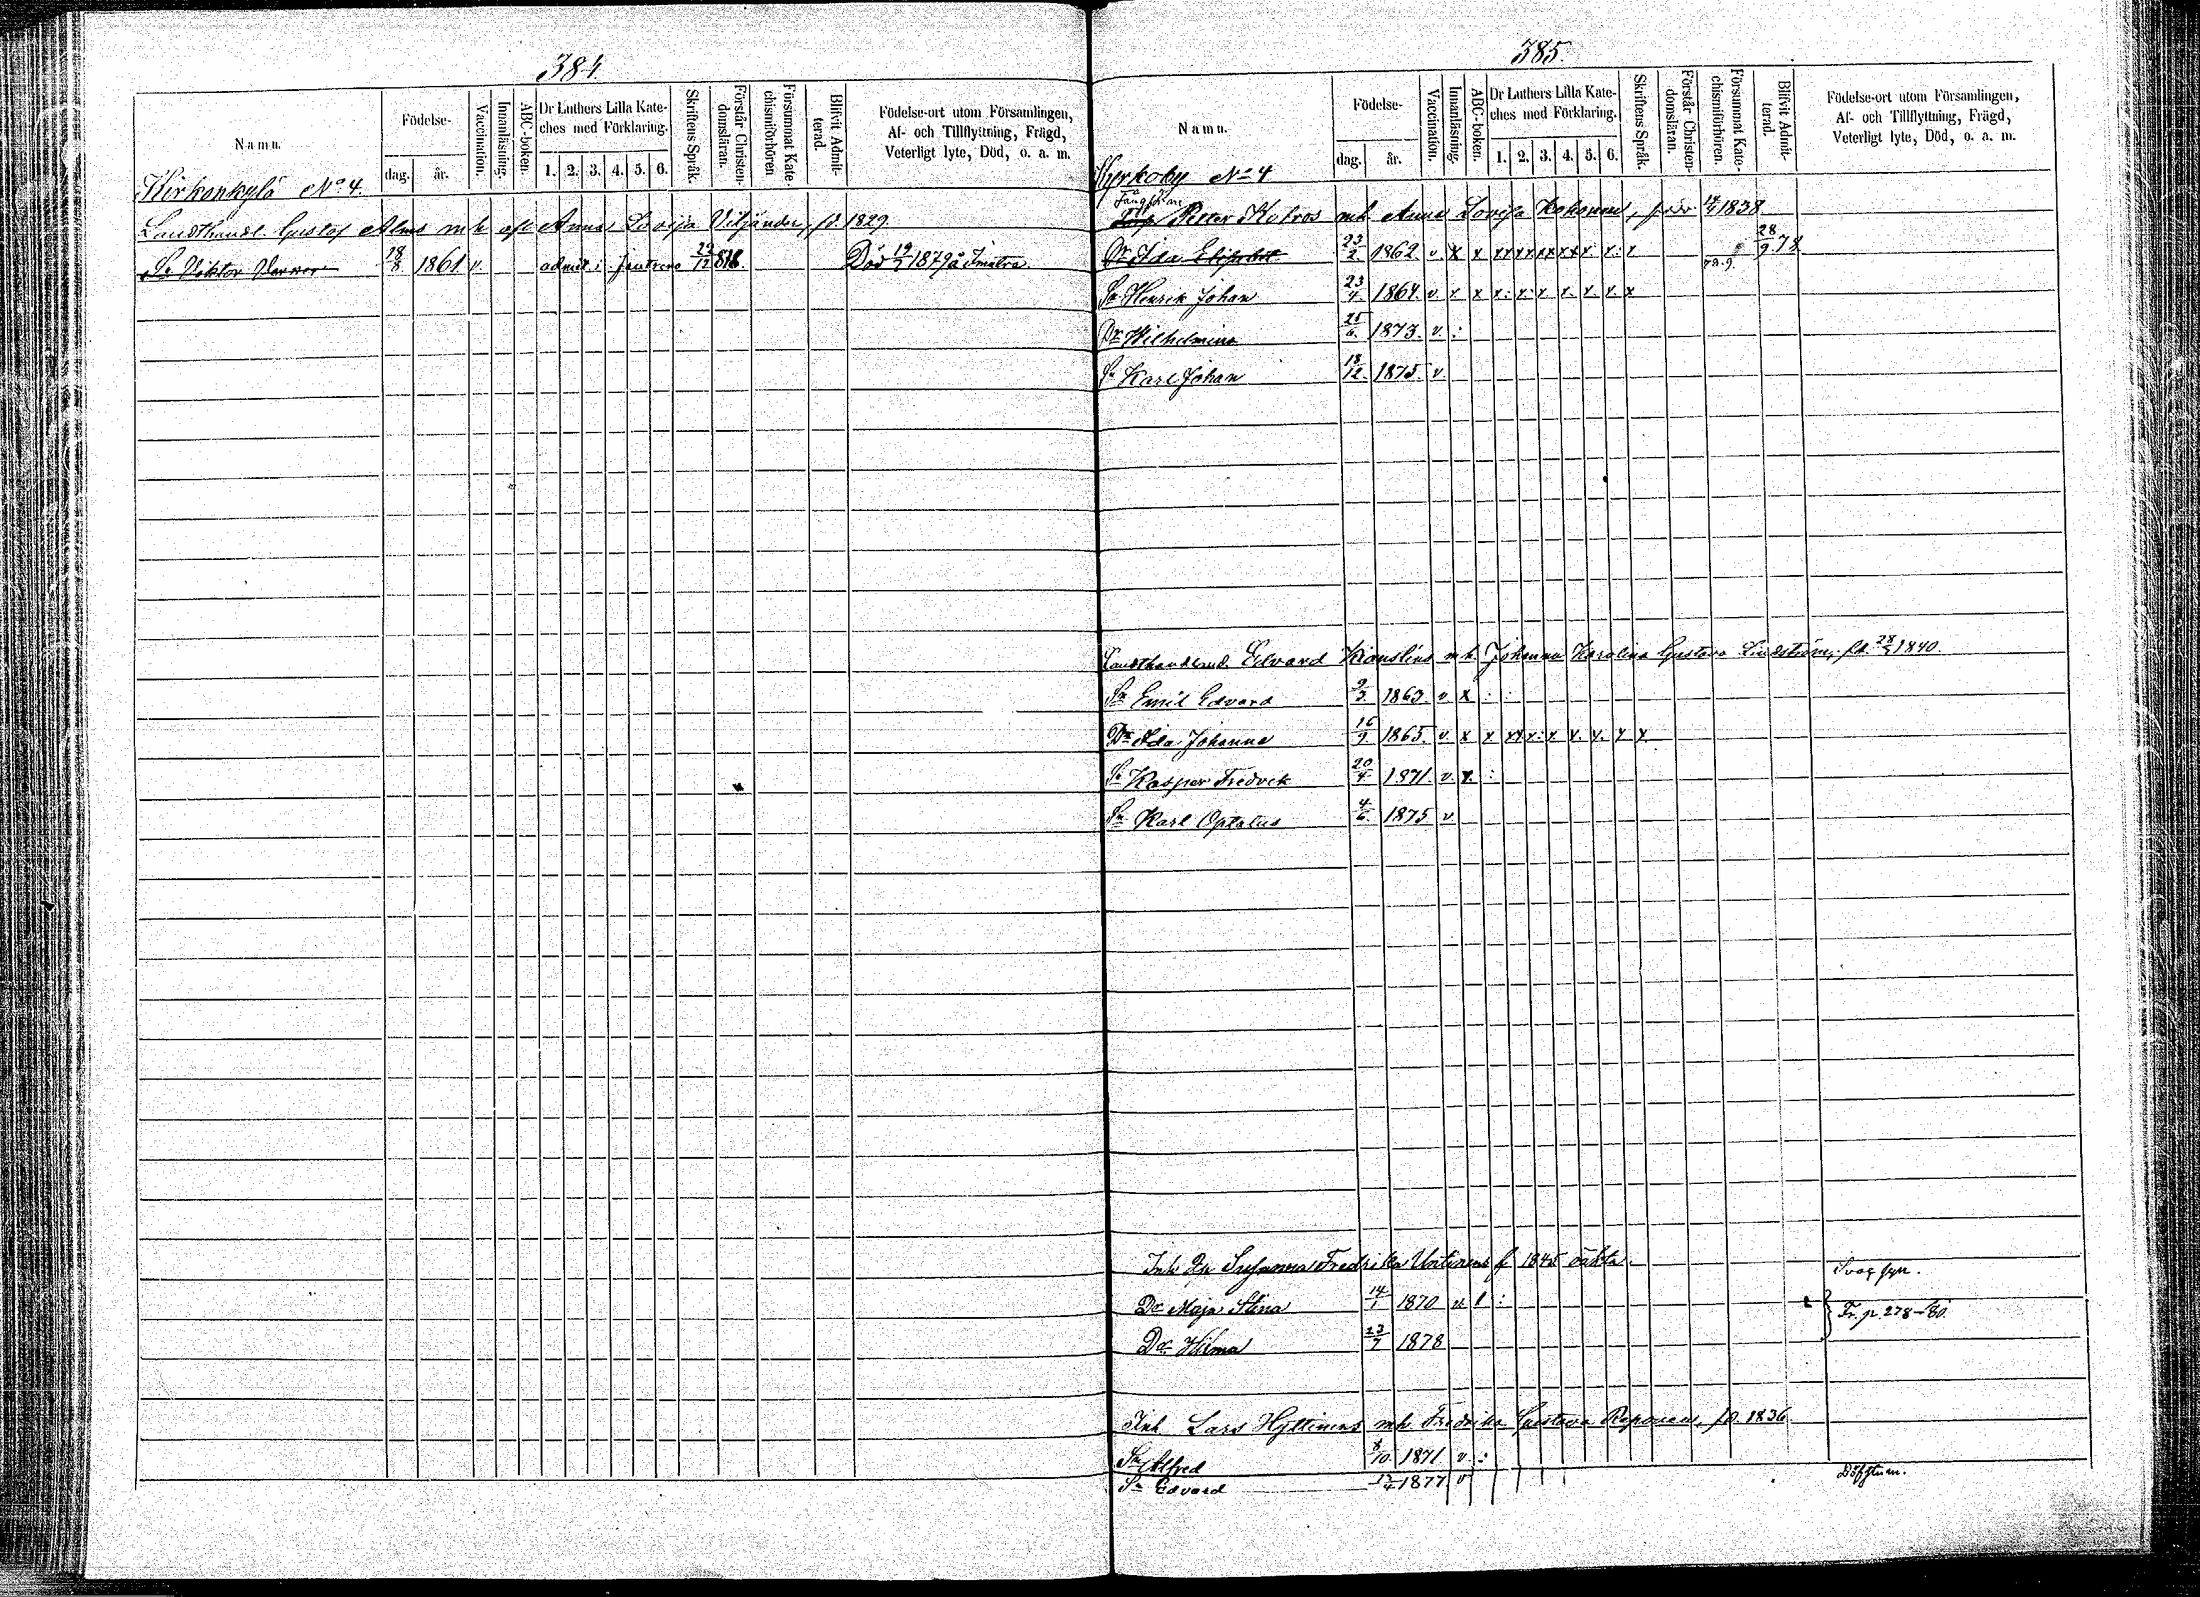 384
Namn.
Födelse-
dag.
år.
Vaccination.
Innanläsning.
ABC-boken.
Dr Luthers Lilla Kate-
ches med Förklaring.
1. 2. 3. 4. 5. 6.
Skriftens Språk.
Förstår Christen-
domsläran.
Försummat Kate-
chismiförhören
Blifvit Admit-
terad.
Födelse-ort utom Församlingen,
Af- och Tillflyttning, Frägd,
Veterligt lyte, Död, o. a. m.
Kirkonkylä No 4.
Landthandl. Gustaf Alms m h afl Anna Lovisa Viljander, fd. 1829.
Sn Viktor Verner 18/8 1861 v. admit. i Död 19/ 1879 å Imatra.
385.
Namn.
Födelse-
dag.
år.
Vaccination.
Innanläsning.
ABC-boken.
Dr Luthers Lilla Kate-
ches med Förklaring.
1. 2. 3. 4. 5. 6.
Skriftens Språk.
Förstår Christen-
domsläran.
Försummat Kate-
chismiförhören.
Blifvit Admit-
terad.
Födelse-ort utom Församlingen,
Af- och Tillflyttning, Frägd,
Veterligt lyte, Död, o. a. m.
Kyrkoby No 4
Petter Kotros mh Anna Lovisa 1838
Dr Ida Elisabet 23/2. 1862. v x x xx xx xx xx x. x: x 28/9 78
Sn Henrik Johan 23/4. 1864. v. x x x: x: x x. x. x. x
Dr Wilhelmina 25/6. 1873. v. :
Sn Karl Johan 18/12. 1875. v.
Landthandland. Edvard m h. Johanna Karolina Gustava Lindström, fd. 28/5 1840.
Sn Emil Edvard 9/3. 1863. v x : :
Dr Ida Johanna 16/9. 1865. v. x x xx x: x x. x. x x
Sn Kasper Fredrek 20/4 1871. v. x. :
Sn Karl Optatus 4/6. 1875 v.
Inh Dr Susanna Fredrika f 1845 oäkta. Svag syn.
Dr Maja Stina 14/1 1870 v. 1 : Fr. p. 278-80.
Dr Hilma 23/7 1878
Inh Lars Hyttinens mh. Fredrika Gustava Reponen, fd. 1836.
Sn Alfred 8/10. 1871 v :
Sn Edvard 1877. v Döfstum.